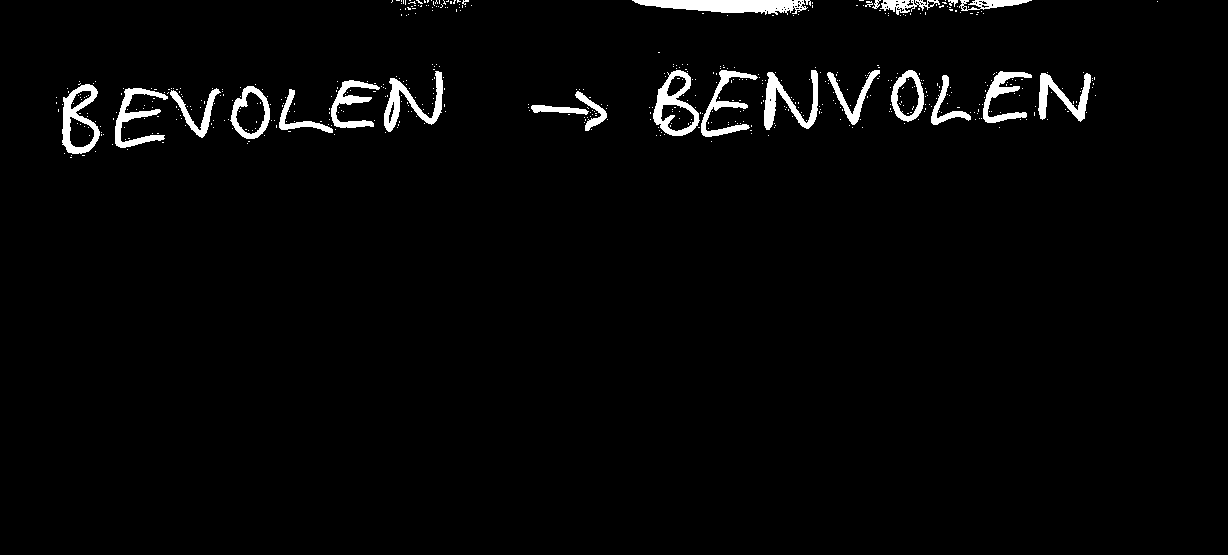 BEVOLEN → BENVOLEN